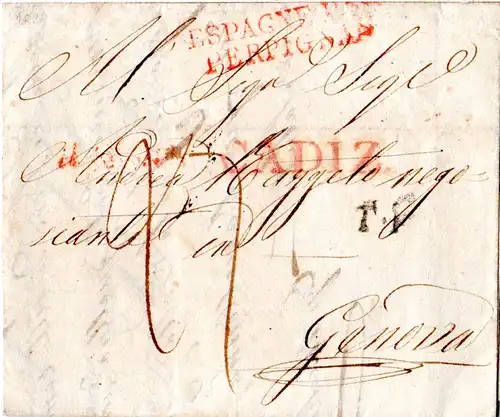 ESPAGNE PAR
PERPIGNAN
Al Sigr Sigre
CADIZ.
Andrea Maggelo nego=
siante in
T.F
Genova